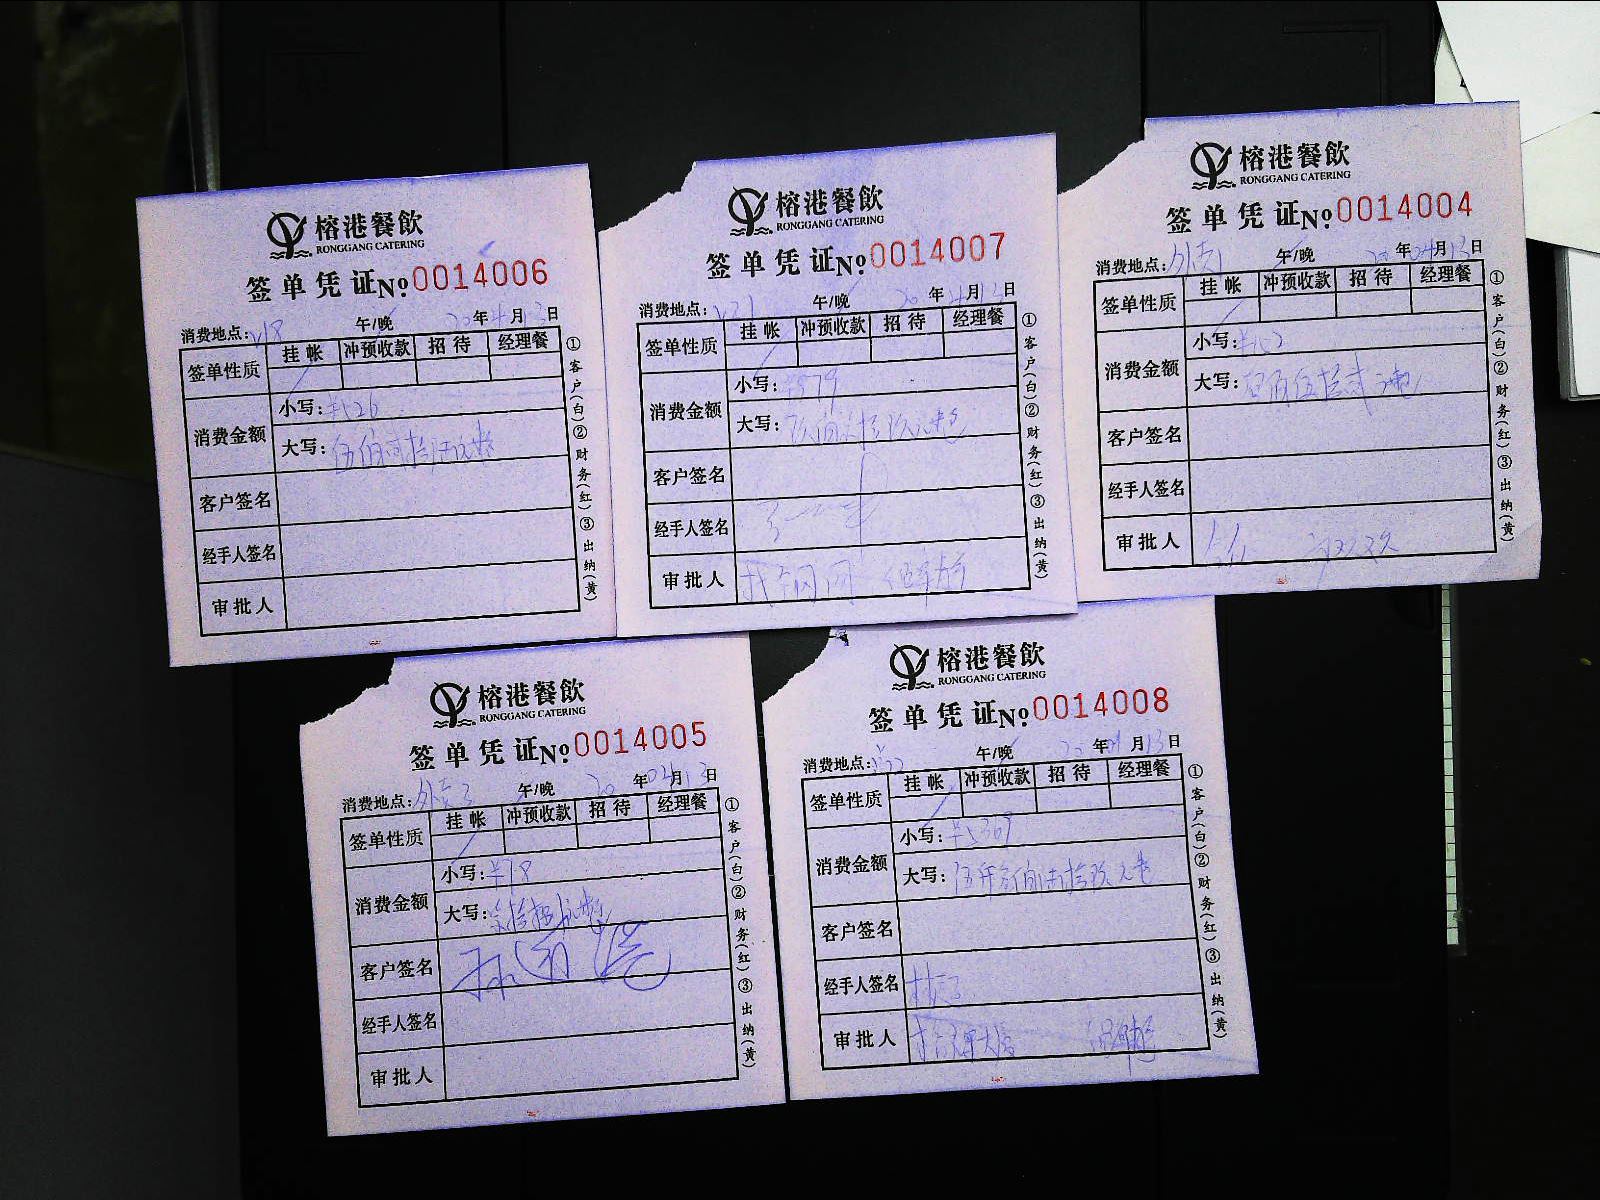 榕港餐飲
RONGGANG CATERING
签单凭证№0014006
消费地点：V18 午/晚 年4月13日
签单性质 挂帐 冲预收款 招待 经理餐
消费金额 小写：¥526
大写：伍佰贰拾陆元整
客户签名
经手人签名
审批人
①客户(白)②财务(红)③出纳(黄)
榕港餐飲
RONGGANG CATERING
签单凭证№0014007
消费地点： 午/晚 20年4月13日
签单性质 挂帐 冲预收款 招待 经理餐
消费金额 小写：
大写：
客户签名
经手人签名
审批人
①客户(白)②财务(红)③出纳(黄)
榕港餐飲
RONGGANG CATERING
签单凭证№0014004
消费地点：外卖1 午/晚 20年04月13日
签单性质 挂帐 冲预收款 招待 经理餐
消费金额 小写：
大写：
客户签名
经手人签名
审批人
①客户(白)②财务(红)③出纳(黄)
榕港餐飲
RONGGANG CATERING
签单凭证№0014005
消费地点：外卖3 午/晚 20年04月13日
签单性质 挂帐 冲预收款 招待 经理餐
消费金额 小写：¥78
大写：柒拾捌元整
客户签名
经手人签名
审批人
①客户(白)②财务(红)③出纳(黄)
榕港餐飲
RONGGANG CATERING
签单凭证№0014008
消费地点： 午/晚 20年04月13日
签单性质 挂帐 冲预收款 招待 经理餐
消费金额 小写：
大写：
客户签名
经手人签名
审批人
①客户(白)②财务(红)③出纳(黄)